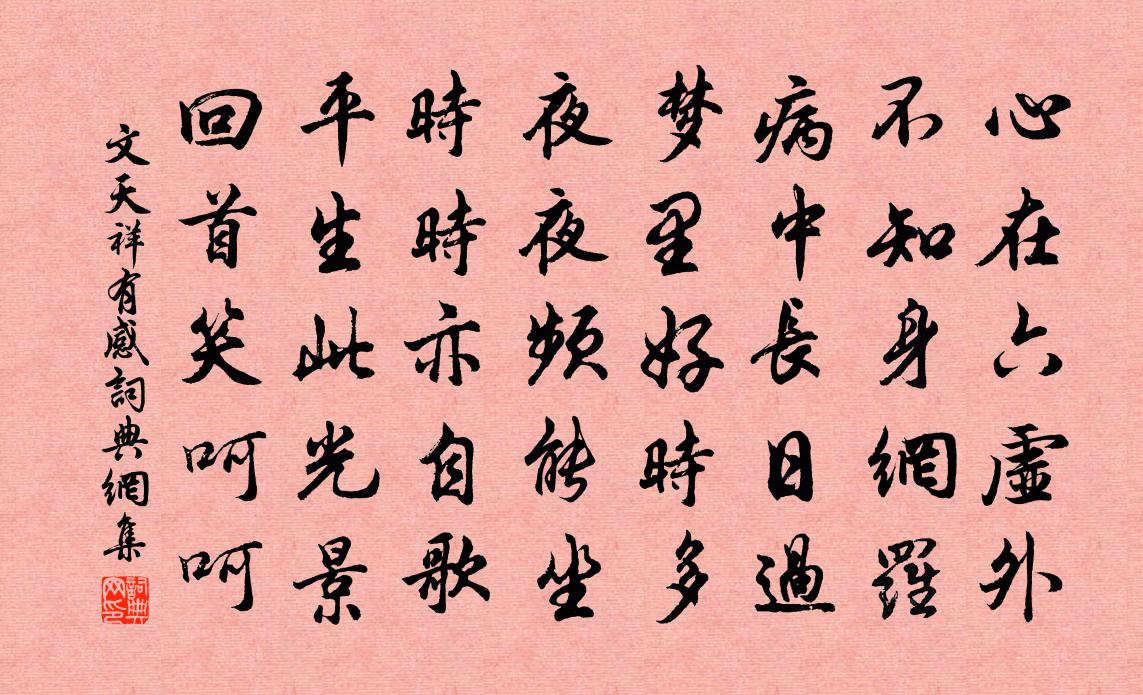 心在六虛外
不知身網羅
病中長日過
梦里好時多
夜夜頻能坐
時時亦自歌
平生此光景
回首笑呵呵
文天祥有感詞典網集
詞典
网印